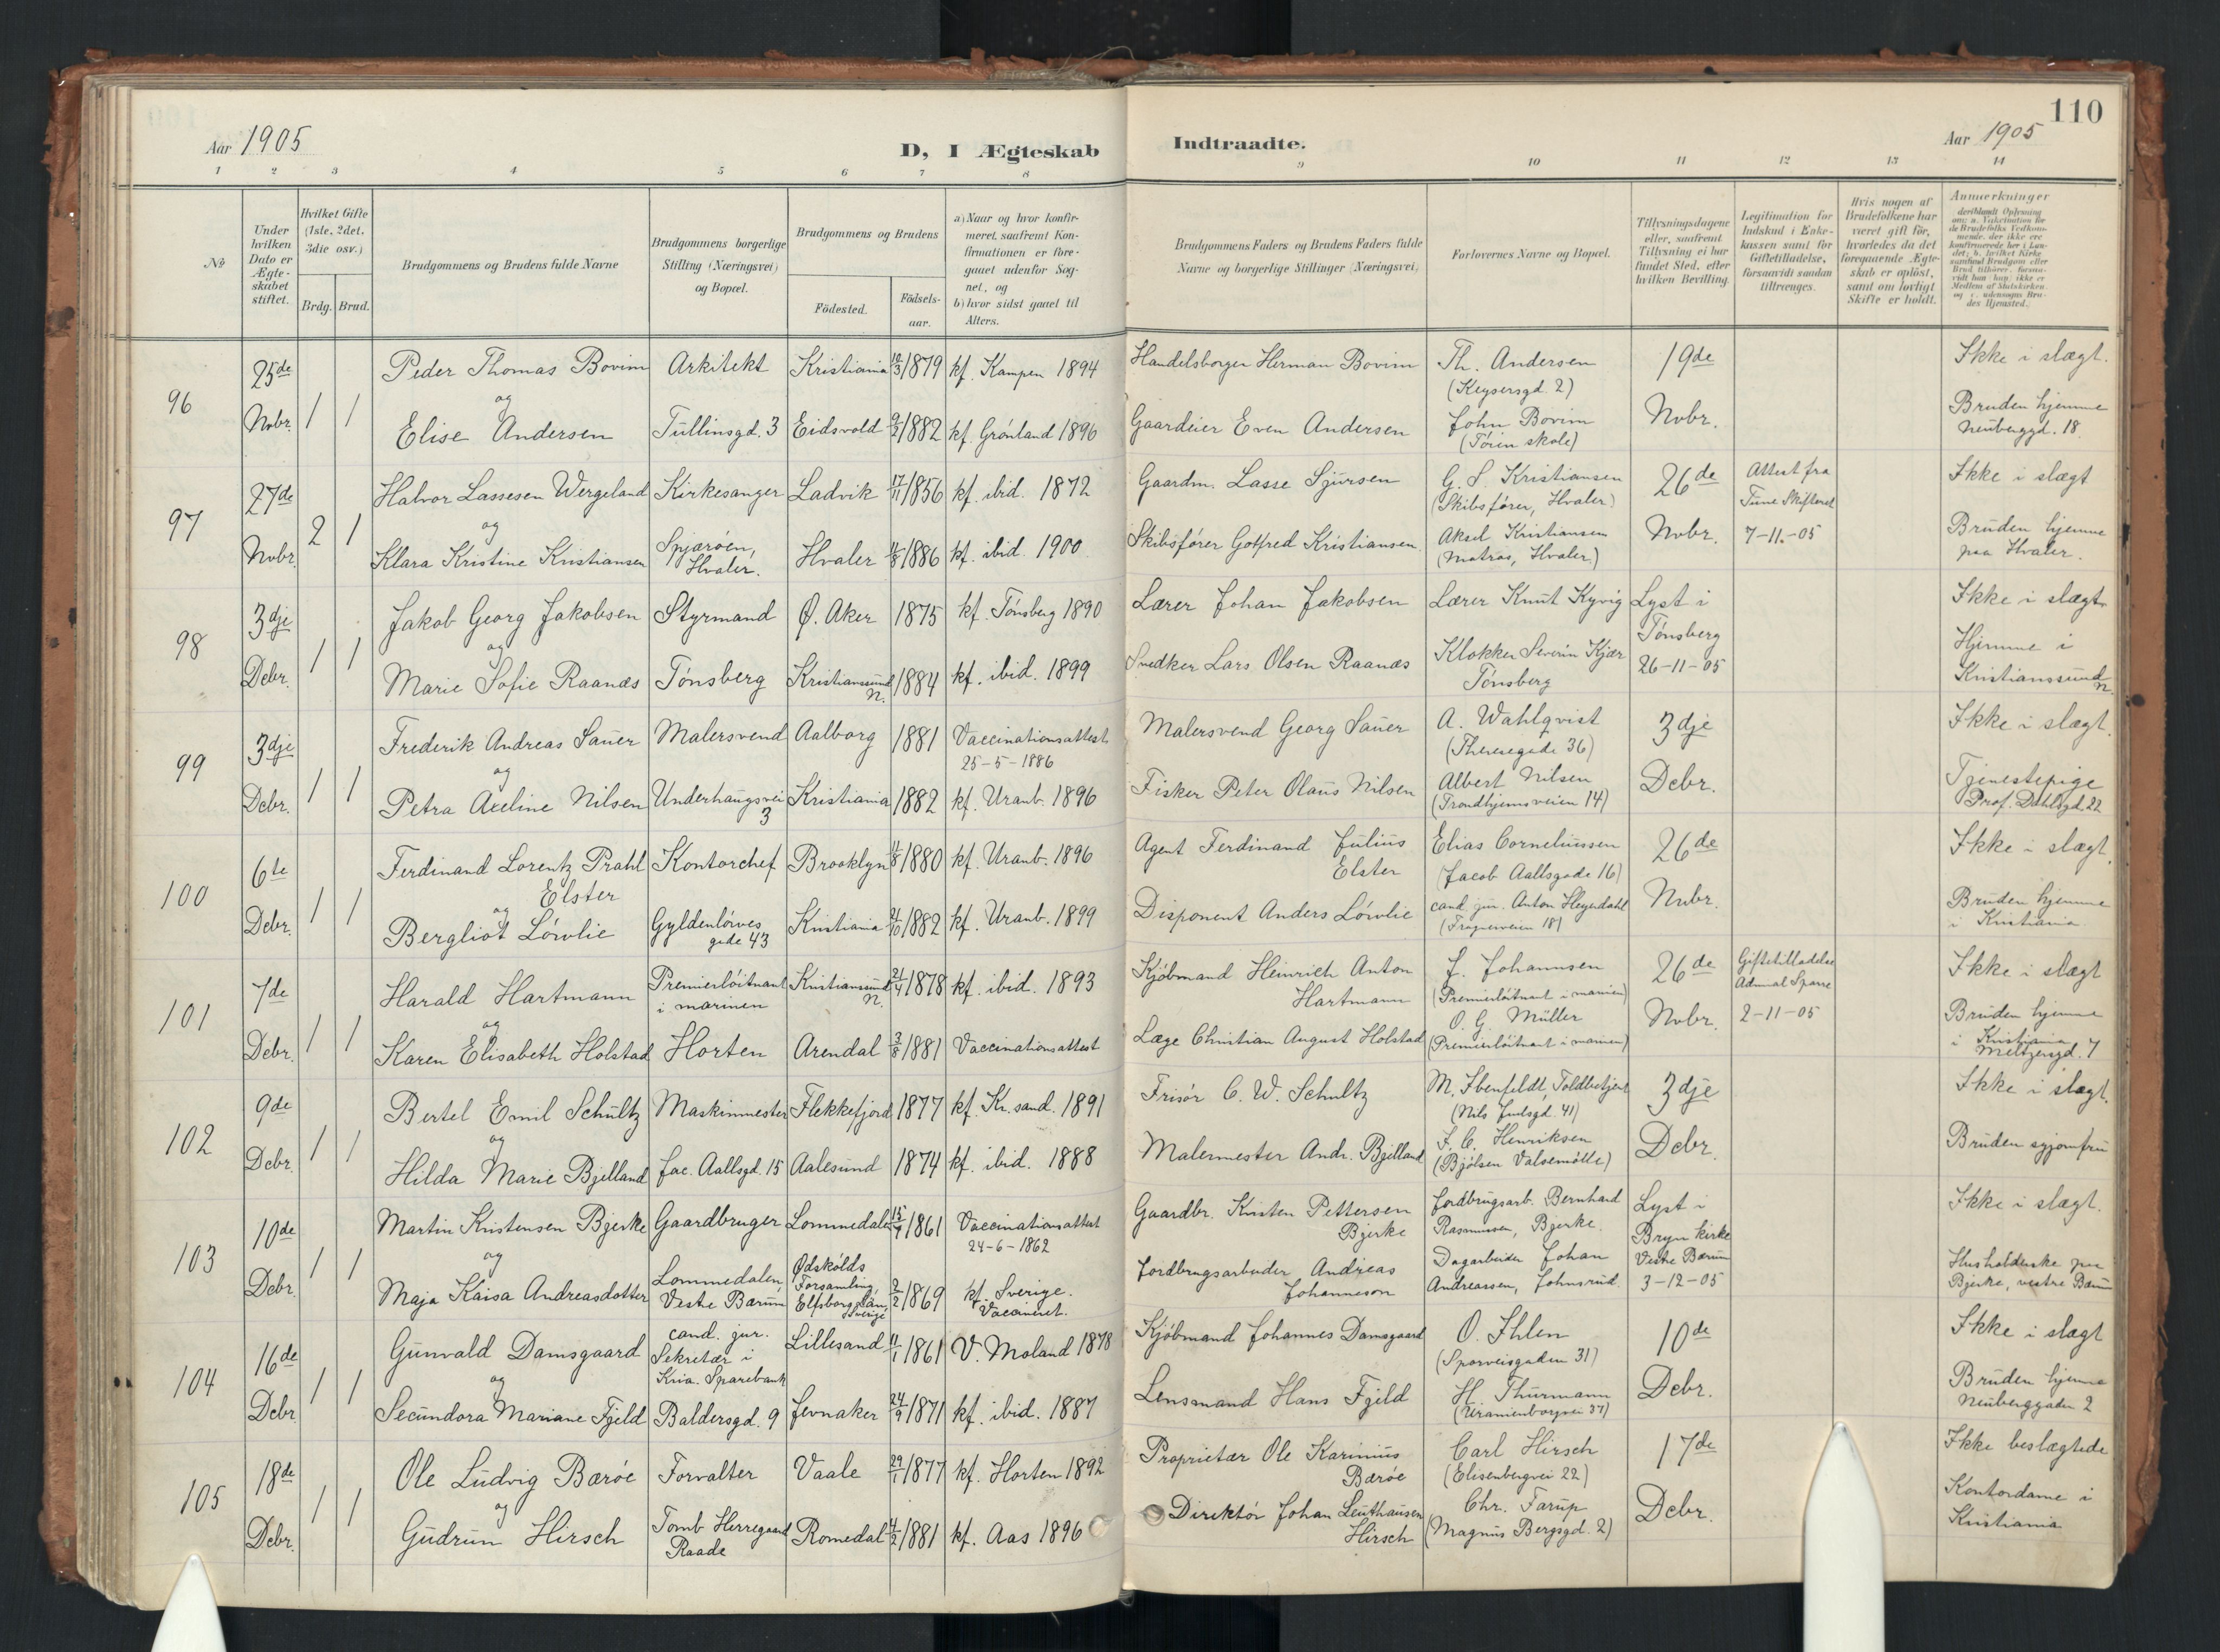 110
Aar 1905
D, I Ægteskab Indtraadte.
Aar 1905
1 2 3 4 5 6 7 8 9 10 11 12 13 14
№
Under hvilken Dato er Ægteskabet stiftet.
Hvilket Gifte (1ste, 2det, 3die osv.)
Brdg. Brud.
Brudgommens og Brudens fulde Navne
Brudgommens borgerlige Stilling (Næringsvei) og Bopæl.
Brudgommens og Brudens
Födested. Födsels-aar.
a) Naar og hvor konfirmeret, saafremt Konfirmationen er foregaaet udenfor Sognet, og
b) hvor sidst gaaet til Alters.
Brudgommens Faders og Brudens Faders fulde Navne og borgerlige Stillinger (Næringsvei)
Forlovernes Navne og Bopæl.
Tillysningsdagene eller, saafremt Tillysning ei har fundet Sted, efter hvilken Bevilling.
Legitimation for Indskud i Enkekassen samt for Giftetilladelse, forsaavidt saadan tiltrænges.
Hvis nogen af Brudefolkene har været gift för, hvorledes da det foregaaende Ægteskab er oplöst, samt om lovligt Skifte er holdt.
Anmærkninger
96 25de Nvbr. 1 1
Peder Thomas Bovim Arkitekt Kristiania 10/3 1879 kf. Kampen 1894 Handelsborger Herman Bovim Th. Andersen (Keysersgd. 2) 19de Ikke i slægt.
og
Elise Andersen Tullinsgd. 3 Eidsvold 9/2 1882 kf. Grønland 1896 Gaardeier Even Andersen John Bovim (Tøien skole) Nvbr. Bruden hjemme Neuberggd. 18
97 27de Nvbr. 2 1
Halvor Lassesen Wergeland Kirkesanger Ladvik 17/11 1856 kf. ibid. 1872 Gaardm. Lasse Sjursen G. S. Kristiansen (Skibsfører, Hvaler) 26de Attest fra Tune Skifteret Ikke i slægt
og
Klara Kristine Kristiansen Spjærøen, Hvaler. Hvaler 1886 kf. ibid. 1900. Skibsfører Gotfred Kristiansen Aksel Kristiansen (Matros, Hvaler) Nvbr. 7-11-05 Bruden hjemme paa Hvaler.
98 3dje Debr. 1 1
Jakob Georg Jakobsen Styrmand Ø. Aker 1875 kf. Tønsberg 1890 Lærer Johan Jakobsen Lærer Knut Kyvig Lyst i Tønsberg Ikke i slægt
og
Marie Sofie Raanæs Tønsberg Kristianssund N. 1884 kf. ibid. 1899 Snedker Lars Olsen Raanæs Klokker Severin Kjær Tønsberg 26-11-05 Hjemme i Kristianssund N.
99 3dje Debr. 1 1
Frederik Andreas Sauer Malersvend Aalborg 1881 Vaccinationsattest 25-5-1886 Malersvend Georg Sauer A. Wahlqvist (Theresegade 36) 3dje Ikke i slægt.
og
Petra Axeline Nilsen Underhaugsvei 3 Kristiania 1882 kf. Uranb. 1896 Fisker Peter Olaus Nilsen Albert Nilsen (Trondhjemsveien 14) Debr. Tjenestepige Prof. Dahlsgd. 22
100 6te Debr. 1 1
Ferdinand Lorentz Prahl Elster Kontorchef Brooklyn 1880 kf. Uranb. 1896 Agent Ferdinand Julius Elster Elias Corneliussen (Jacob Aallsgade 16) 26de Ikke i slægt.
og
Bergliot Løvlie Gyldenløves gade 43 Kristiania 1882 kf. Uranb. 1899 Disponent Anders Løvlie cand. jur. Anton Heyerdahl (Frognerveien 18) Nvbr. Bruden hjemme i Kristiania
101 7de Debr. 1 1
Harald Hartmann Premierløitnant i marinen Kristianssund N. 21/4 1878 kf. ibid. 1893 Kjøbmand Heinrich Anton Hartmann J. Johannsen (Premierløitnant i marinen) 26de Giftetilladelse Admiral Sparre Ikke i slægt
og
Karen Elisabeth Holstad Horten Arendal 3/8 1881 Vaccinationsattest Læge Christian August Holstad O. G. Müller (Premierløitnant i marinen) Nvbr. 2-11-05 Bruden hjemme i Kristiania Meltzersgd. 7
102 9de Debr. 1 1
Bertel Emil Schultz Maskinmester Flekkefjord 1877 kf. Kr.sand. 1891 Frisør C. W. Schultz M. Ibenfeldt, Toldbetjent (Nils Juelsgd. 41) 3dje Ikke i slægt.
og
Hilda Marie Bjelland Jac. Aallsgd. 15 Aalesund 1874 kf. ibid. 1888 Malermester Andr. Bjelland F. C. Henriksen (Bjølsen Valsemølle) Debr. Bruden syjomfru
103 10de Debr. 1 1
Martin Kristensen Bjerke Gaardbruger Lommedalen 15/4 1861 Vaccinationsattest 24-6-1862 Gaardbr. Kristen Pettersen Bjerke Jordbrugsarb. Bernhard Rasmussen, Bjerke. Lyst i Bryn kirke Ikke i slægt.
og
Maja Kaisa Andreasdotter Lommedalen, Vestre Bærum Ødskölds Forsamling, Elfsborgs län, Sverige 2/2 1869 kf. Sverige. Vaccineret. Jordbrugsarbeider Andreas Johanneson Dagarbeider Johan Andreassen, Johnsrud. Vestre Bærum 3-12-05 Husholderske paa Bjerke, vestre Bærum
104 16de Debr. 1 1
Gunvald Damsgaard cand. jur. Sekretær i Kria. Sparebank Lillesand 11/1 1861 V. Moland 1878 Kjøbmand Johannes Damsgaard O. Ihlen (Sporveisgaden 31) 10de Ikke i slægt
og
Secundora Mariane Fjeld Baldersgd. 9 Jevnaker 24/9 1871 kf. ibid. 1887 Lensmand Hans Fjeld H. Thurmann (Uranienborgvei 37) Debr. Bruden hjemme Neuberggaden 2
105 18de Debr. 1 1
Ole Ludvig Bærøe Forvalter Vaale 29/1 1877 kf. Horten 1892 Proprietær Ole Karinius Bærøe Carl Hirsch (Elisenbergvei 22) 17de Ikke beslægtede
og
Gudrun Hirsch Tomb Herregaard Raade Romedal 4/2 1881 kf. Aas 1896 Direktør Johan Leuthausen Hirsch Chr. Farup (Magnus Bergsgd. 2) Debr. Kontordame i Kristiania